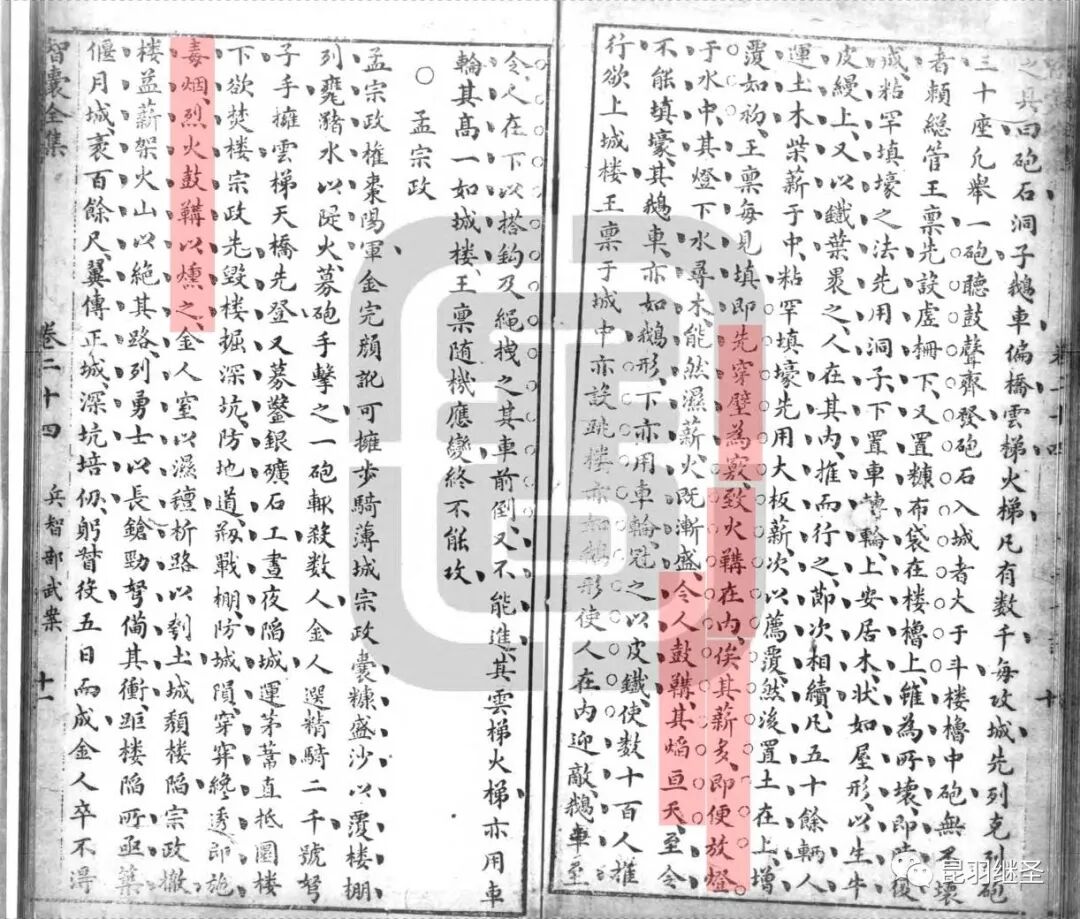 之具曰砲石洞子鵝車偏橋雲梯火梯凡有数千每攻城先列克列砲
三十座允舉一砲聽鼓聲齊發砲石入城者大于斗楼櫓中砲無不壞
者賴総管王禀先設虛柵下又置糠布袋在楼櫓上雖為所壞即時復
成粘罕填壕之法先用洞子下置車轉輪上安居木状如屋形以生牛
皮縵上又以鐵葉畏之人在其内推而行之節次相續凡五十餘輌人
運土木柴薪于中粘罕填壕先用大板薪次以薦覆然後置土在上增
覆如初王禀每見填即先穿壁為竅致火鞲在内俟其薪多即便放燈
于水中其燈下水尋木能然濕薪火既漸盛令人鼓鞲其焰亘天至令
不能填壕其鵝車亦如鵝形下亦用車輪冠之以皮鐵使数十百人推
行欲上城楼王禀于城中亦設跳楼亦如鵝形使人在内迎敵鵝車至
令人在下以搭鈎及繩拽之其車前倒又不能進其雲梯火梯亦用車
輪其高一如城楼王禀随機應變終不能攻
○孟宗政
孟宗政権棗陽軍金完顔訛可擁步騎薄城宗政囊糠盛沙以覆楼棚
列甕潴水以隄火募砲手擊之一砲輒殺数人金人選精騎二千號弩
子手擁雲梯天橋先登又募鑿銀礦石工晝夜陷城運茅葦直抵圜楼
下欲焚楼宗政先毁楼掘深坑防地道剏戰棚防城隕穿穽纔透即施
毒烟烈火鼓鞲以燻之金人窒以濕氊析路以刳土城頽楼陷宗政撤
楼益薪架火山以絶其路列勇士以長鎗勁弩備其衝距楼陷所亟築
偃月城袤百餘尺翼傅正城深坑培仭躬督役五日而成金人卒不得
智囊全集 卷二十四 兵智部武案 十一
昆羽继圣